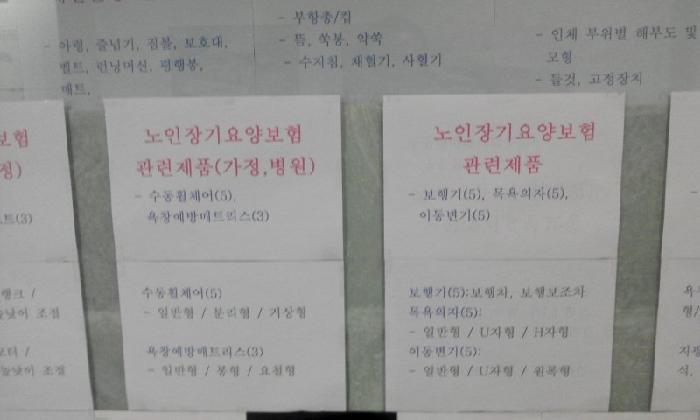 - 부항총/컵
- 아령, 줄넘기, 짐볼, 보호대,
벨트, 런닝머신, 평행봉,
매트,
- 뜸, 쑥봉, 약쑥
- 수지침, 채혈기, 사혈기
- 인체 부위별 해부도 및
모형
- 들것, 고정장치
보험
정)
트(3)
행크 /
높낮이 조절
모터 /
높낮이 조절
노인장기요양보험
관련제품(가정,병원)
- 수동휠체어(5),
욕창예방매트리스(3)
수동휠체어(5)
- 일반형 / 분리형 / 거상형
욕창예방매트리스(3)
- 일반형 / 봉형 / 요철형
노인장기요양보험
관련제품
- 보행기(5), 목욕의자(5),
이동변기(5)
보행기(5):보행차, 보행보조차
목욕의자(5):
- 일반형 / U자형 / H자형
이동변기(5):
- 일반형 / U자형 / 원목형
형/
지팡
식,